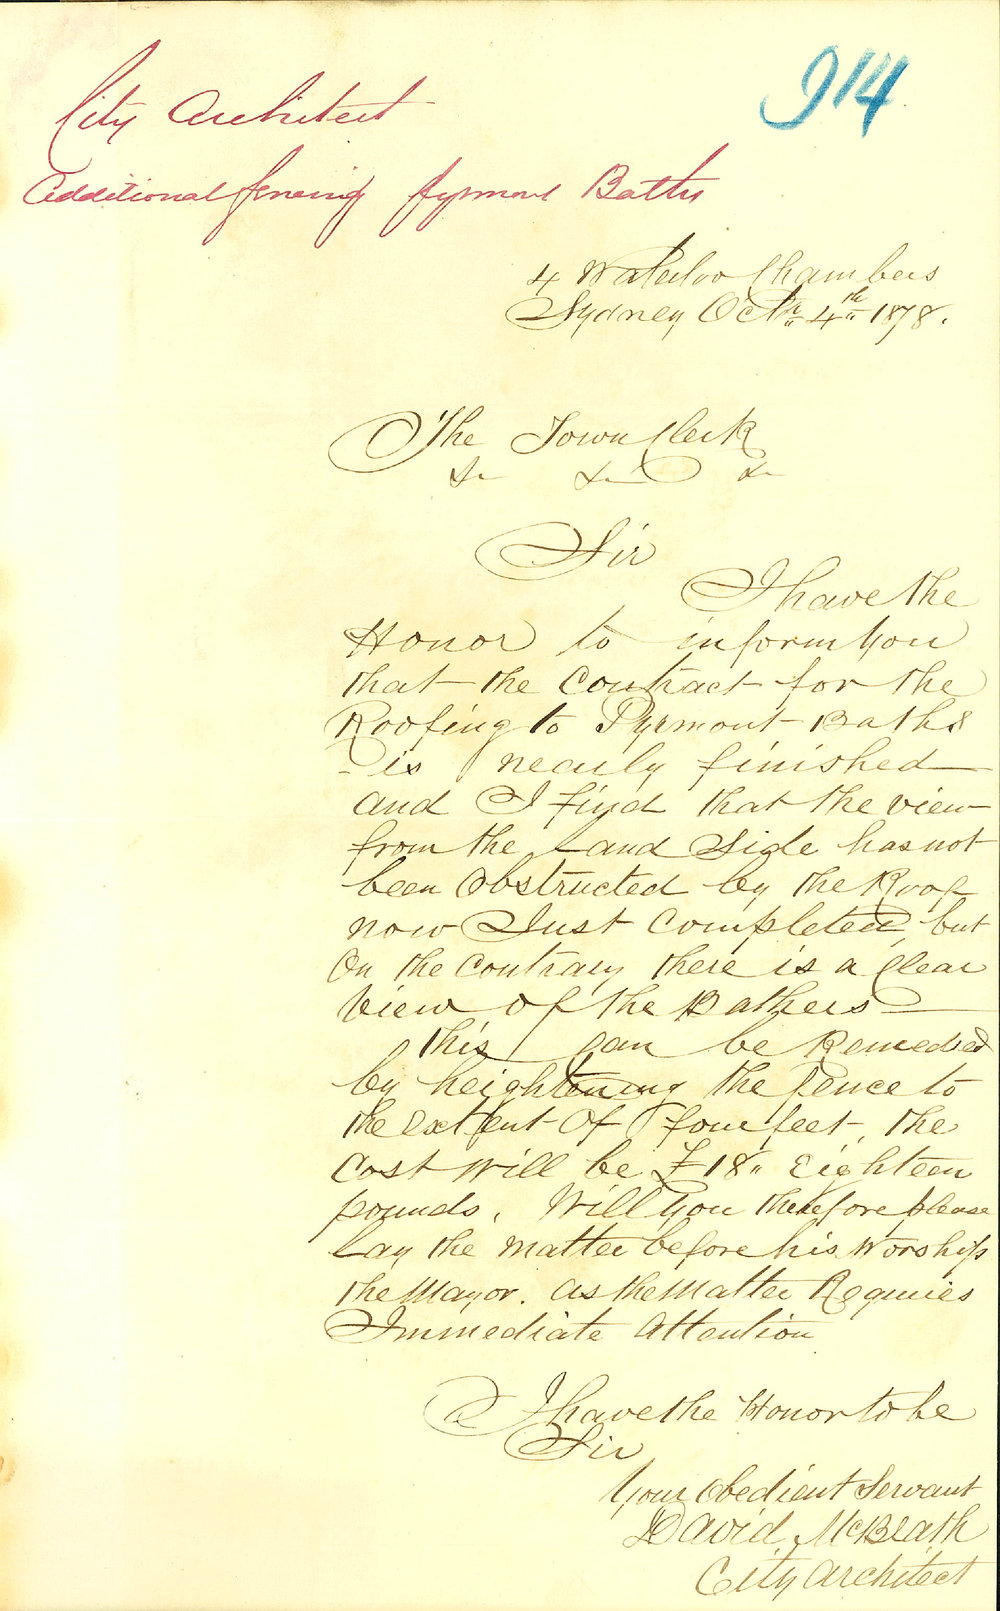 914
City Architect
Additional fencing Pyrmont Baths
4 Waterloo Chambers
Sydney Octr 4th 1878.
The Town Clerk
&c &c &c
Sir
I have the
Honor to inform you
that the Contract for the
Roofing to Pyrmont Baths
is nearly finished
and I find that the view
from the Land Side has not
been Obstructed by the Roof
now Just Completed, but
On the Contrary there is a Clear
View of the Bathers
this can be Remedied
by heightening the fence to
the extent Of four feet, the
Cost will be £18" Eighteen
pounds. Will you therefore please
Lay the matter before his Worship
the Mayor. as the Matter Requires
Immediate Attention
I have the Honor to be
Sir
Your Obedient Servant
David McBeath
City Architect